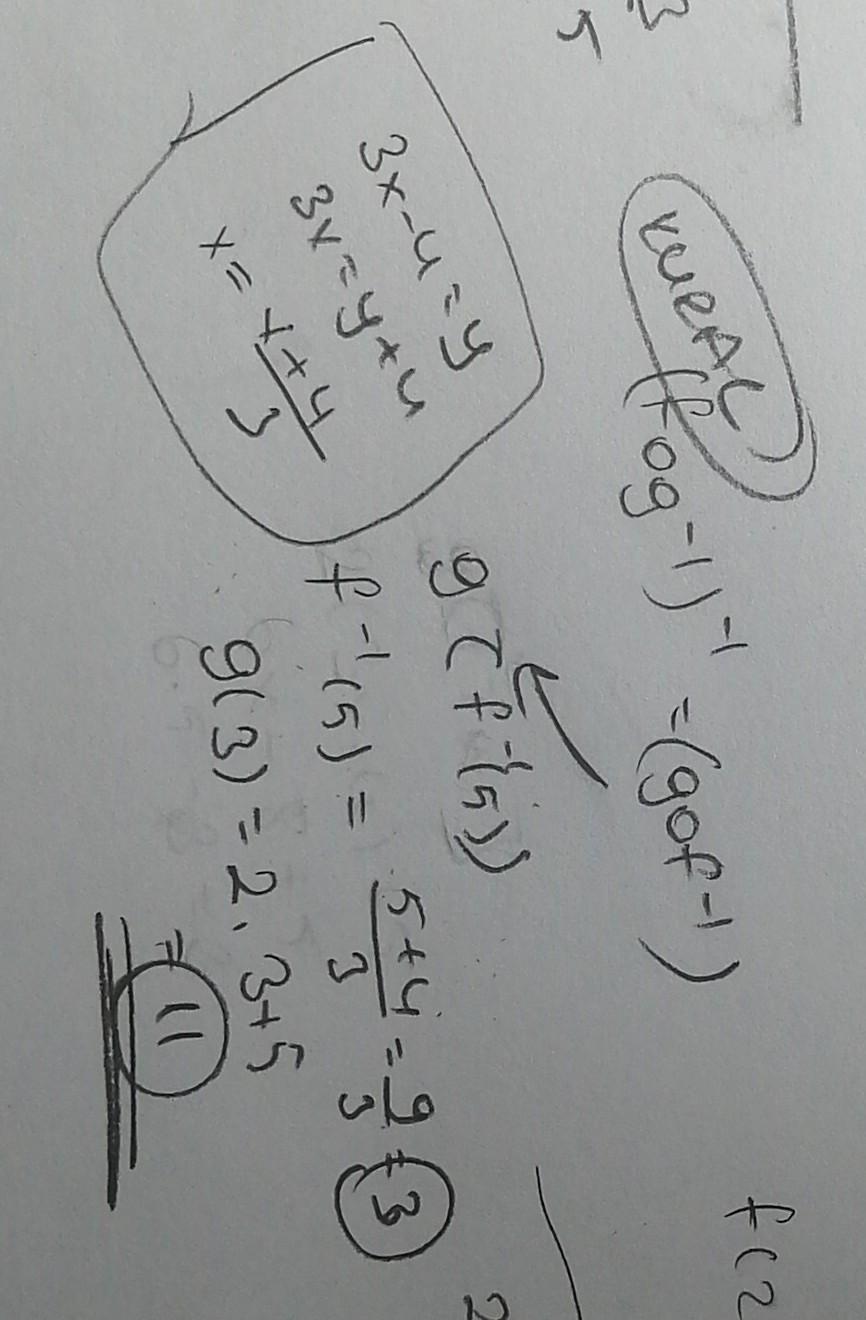 KURAL
(fog⁻¹)⁻¹ = (gof⁻¹)
g(f⁻¹(5))
3x-4=y
3x=y+4
x= x+4/3
f⁻¹(5) = 5+4/3 = 9/3 = 3
g(3) = 2.3+5
= 11
f(2
2
3
5